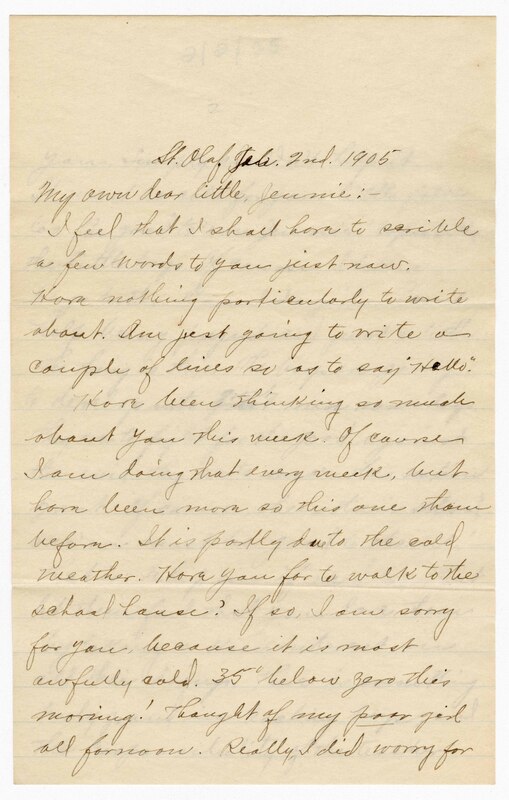 St. Olaf, Feb. 2nd. 1905
My own dear little, Jennie:-
I feel that I shall have to scrible
a few words to you just now.
Have nothing particularly to write
about. Am just going to write a
couple of lines so as to say "Hello".
Have been thinking so much
about you this week. Of course
I am doing that every week, but
have been more so this one than
before. It is partly du to the cold
weather. Have you far to walk to the
school house? If so, I am sorry
for you, because it is most
awfully cold. 35° below zero this
moring! Thought of my poor girl
all fornoon. Really, I did worry for